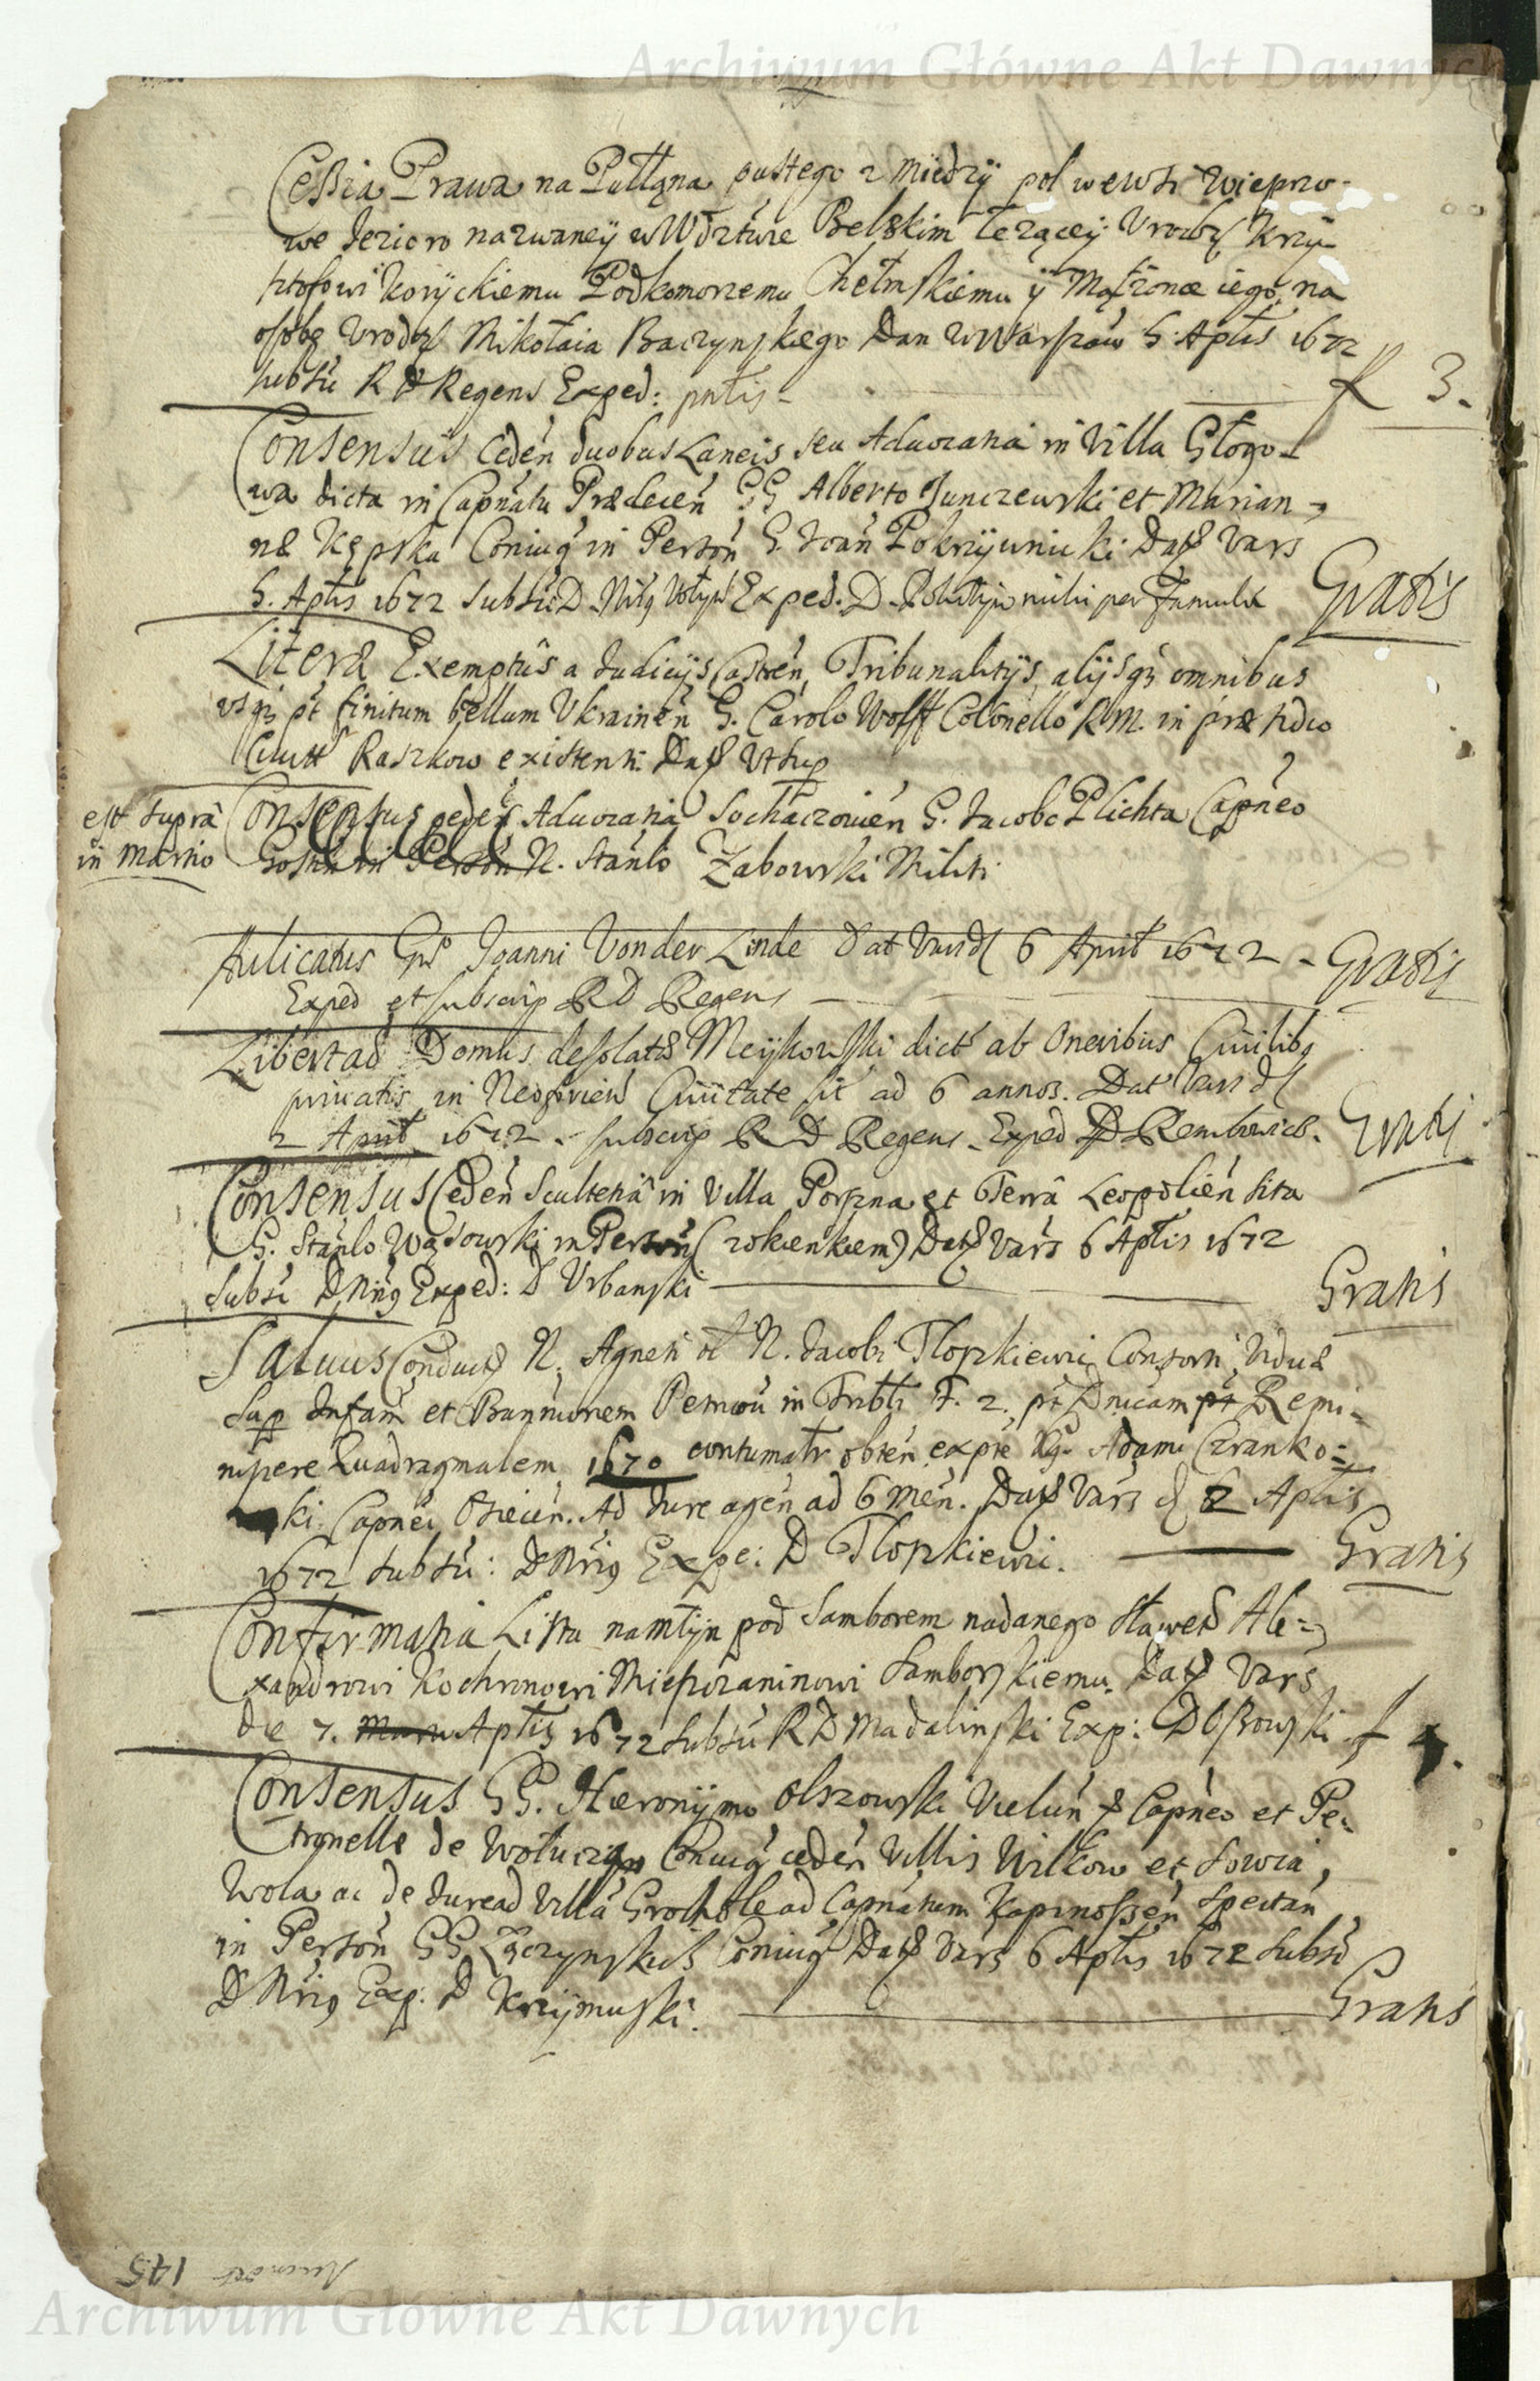 Archiwum Główne Akt Dawnych
Cessia Prawa na Pułłana pustego z Miedzÿ pol we wsi Wieprzo-
we Jezioro nazwaneÿ w Wdztwie Belskim leząceÿ Vrodz Krzÿ-
sztofowi Korÿckiemu Podkomorzemu Chełmskiemu ÿ Małzonce iego, na
osobę Vrodz Mikołaia Baczynskiego Dan w Warszaw 5 Aplis 1672
subscr R D Regens Exped: pntis - f 3.
Consensus ceden duobus Laneis seu Advocatia in Villa Głogo-
wa dicta in Capnatu Præd GG Alberto Junczewski et Marian-
næ Kępska Coniug in Person G. Joan Pokrzÿwnicki Dat Vars
5. Aplis 1672 Subscr D. Exped. D. per famulu Gratis
Literæ Exemptus a Judicÿs Castren, Tribunalitÿs, alÿsq omnibus
usq pt finitum bellum Vkrainen G. Carolo Wolff Colonello R.M. in præsidio
Civitt Raszkow existenti. Dat Vt sup
est supra
in Martio
Consensus ceden Advocatia Sochaczovien G. Jacobo Plichta Capneo
Gostin in Person N. Stanlo Zabowski Militi
Aulicatus Gnso Joanni Vonder Linde Dat Vars d 6 April 1672 - Gratis
Exped et subscrip R D Regens
Libertao Domus desolatæ Meÿkowski dict ab Oneribus Civilibg
privatis in Neo Civitate sit ad 6 annos. Dat Vars d
2 April 1672 - subscrip R D Regens - Exped D Rembowicz. Gratis
Consensus Ceden Scultetia in Villa Porszna et Terrâ Leopolien sita
G. Stanlo Wąsowski in Person (z okienkiem) Dat Vars 6 Aplis 1672
Subscr D Exped: D Vrbanski Gratis
Salvus Conduct N. Agneti ol N. Jacobi Tlopkiewic Consorti, Viduæ
Sup Infam et Bannitionem Petricov in Tribli F. 2. pt Dnicam pt Remi-
niscere Quadragmalem 1670 contumatr obten, ex pte Adami Czranko-
ski Capnei Osiecen. Ad Jure agen ad 6 Men. Dat Vars d 2 Aplis
1672 subscr: D Expe: D Tlopkiewic. Gratis
Confirmatia Listu na młÿn pod Samborem nadanego Sławet Ale-
xandrowi Kochronowi Miesczaninowi Samborskiemu. Dat Vars
die 7. Aplis 1672 Subscr R D Madalinski Exp: D Ossowski f 4.
Consensus GG. Hieronÿmo Olszowski Vielun Capneo et Pe-
tronelle de Coniug ceden Villis Wilkow et Sowia
Wola ac de Jure ad Villa Grochole ad Capnatum Kapinossen Spectan
in Person GG Łączynskich Coniug Dat Vars 6 Aplis 1672 Subscr
D Exp: D Krzÿmuski. Gratis
145
Archiwum Główne Akt Dawnych